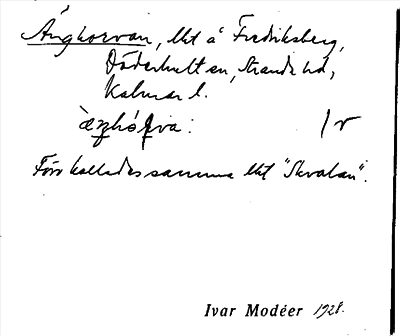 Ångkorvan, lht å Fredriksberg,
Döderhult sn, Stranda hd,
Kalmar l.
1 r
Förr kallades samma lht "Skvalan".
Ivar Modéer 1928.